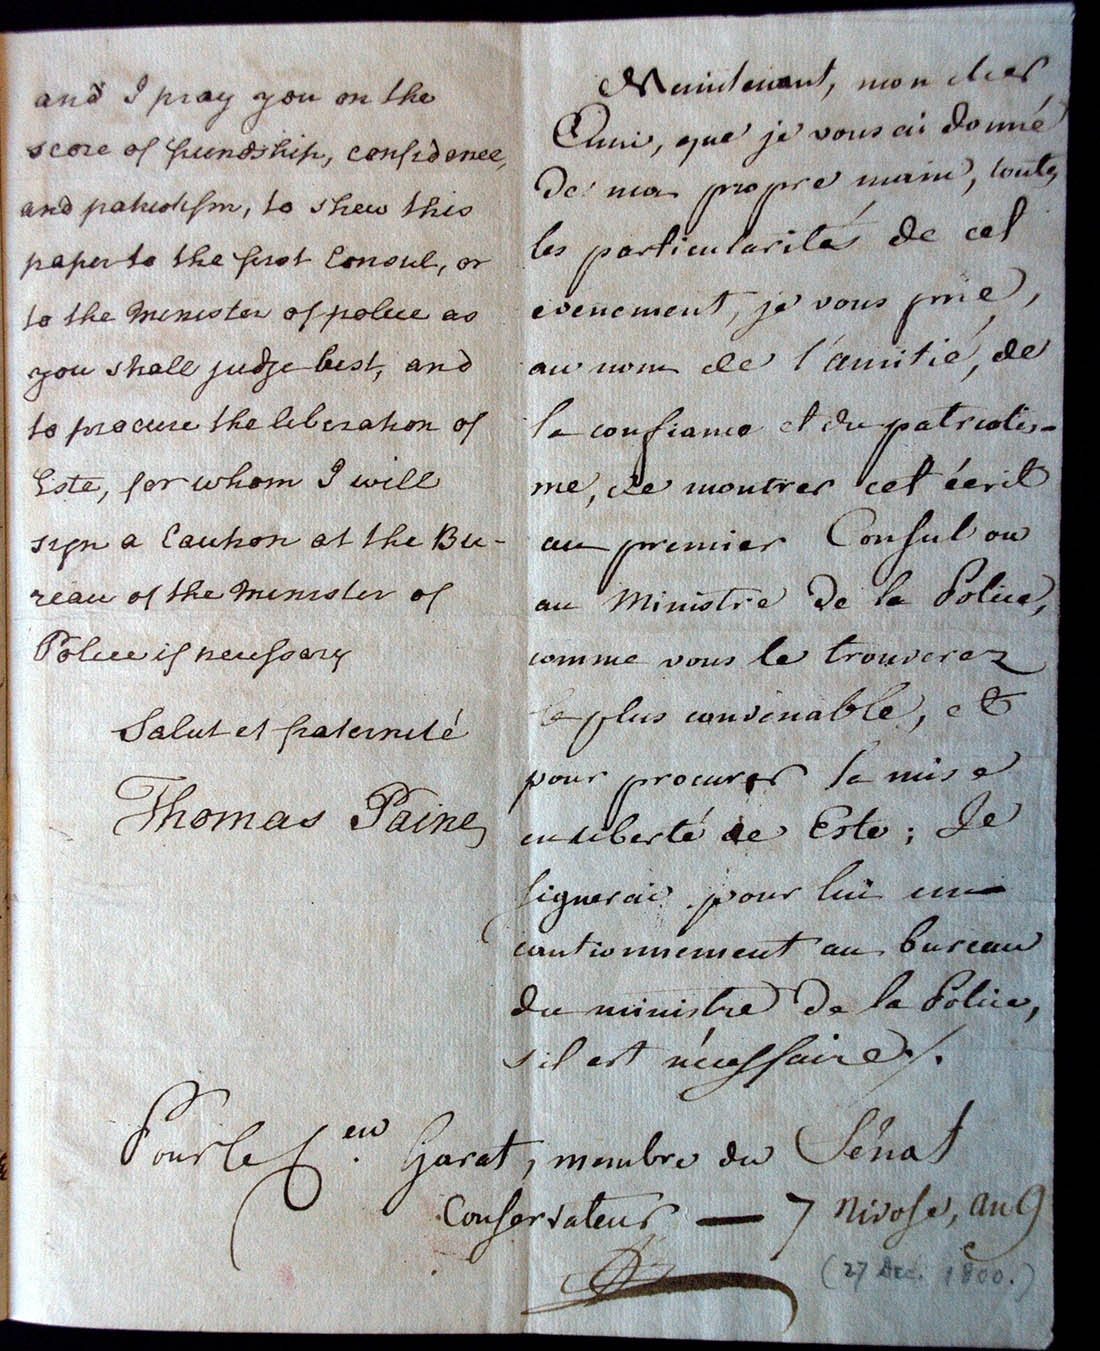 and I pray you on the
score of friendship, confidence,
and patriotism, to shew this
paper to the first Consul, or
to the Minister of police as
you shall judge best, and
to procure the liberation of
Este, for whom I will
sign a Caution at the Bu-
reau of the Minister of
Police if necessary
Salut et fraternité
Thomas Paine
Maintenant, mon cher
Ami, que je vous ai donné
de ma propre main, toutes
les particularités de cet
evenement, je vous prie,
au nom de l'amitié, de
la confiance et du patriotis-
me, de montrer cet écrit
au premier Consul ou
au Ministre de la Police,
comme vous le trouverez
le plus convenable, et
pour procurer la mise
en liberté de Este; Je
signerai pour lui un
cautionnement au bureau
du ministre de la Police,
s'il est nécessaire /.
Pour le C.en Garat, membre du Sénat
Conservateur — 7 Nivose, an 9
(27 Dec. 1800.)